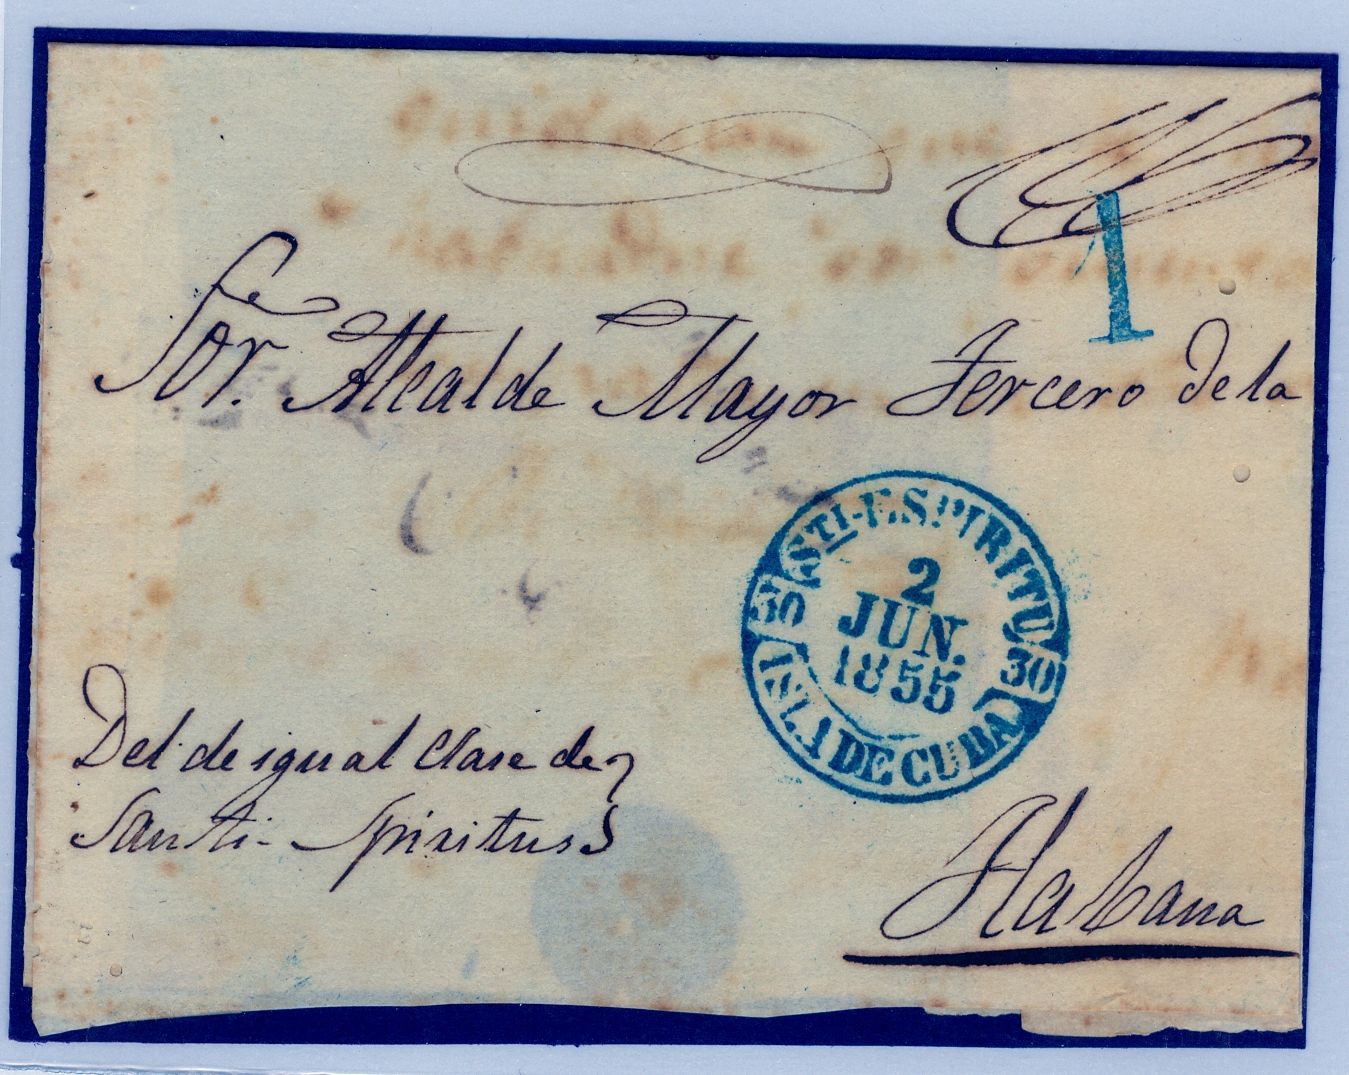 1
Sor. Alcalde Mayor Tercero de la
STI-ESPIRITU
2
JUN.
1855
30
30
ISLA DE CUBA
Del de igual clase de
Santi-Spiritus
Habana